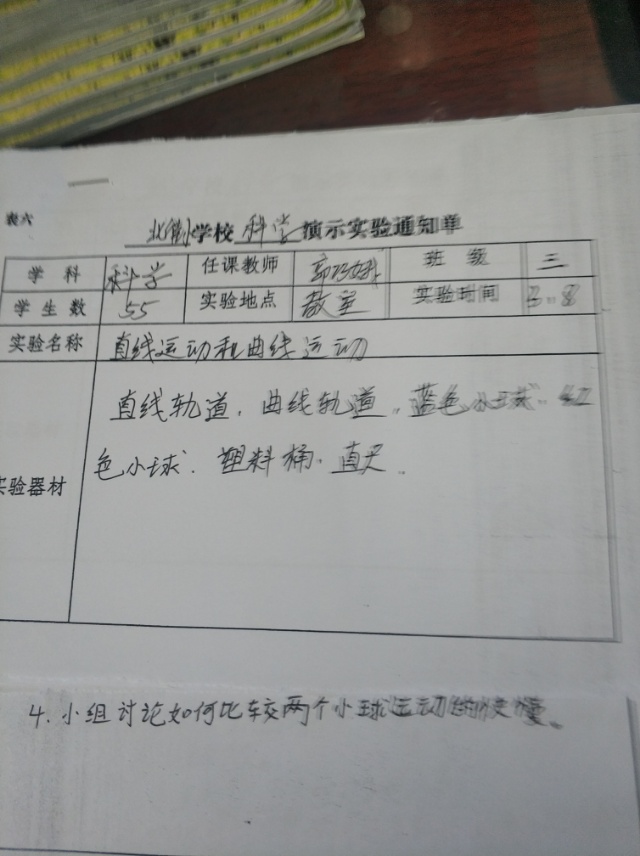 表六
学校科学演示实验通知单
学科 科学 任课教师 班级 三
学生数 55 实验地点 教室 实验时间 3.8
实验名称 直线运动和曲线运动
直线轨道，曲线轨道，蓝色小球．红
色小球．塑料桶．直尺．
实验器材
4.小组讨论如何比较两个小球运动的快慢。